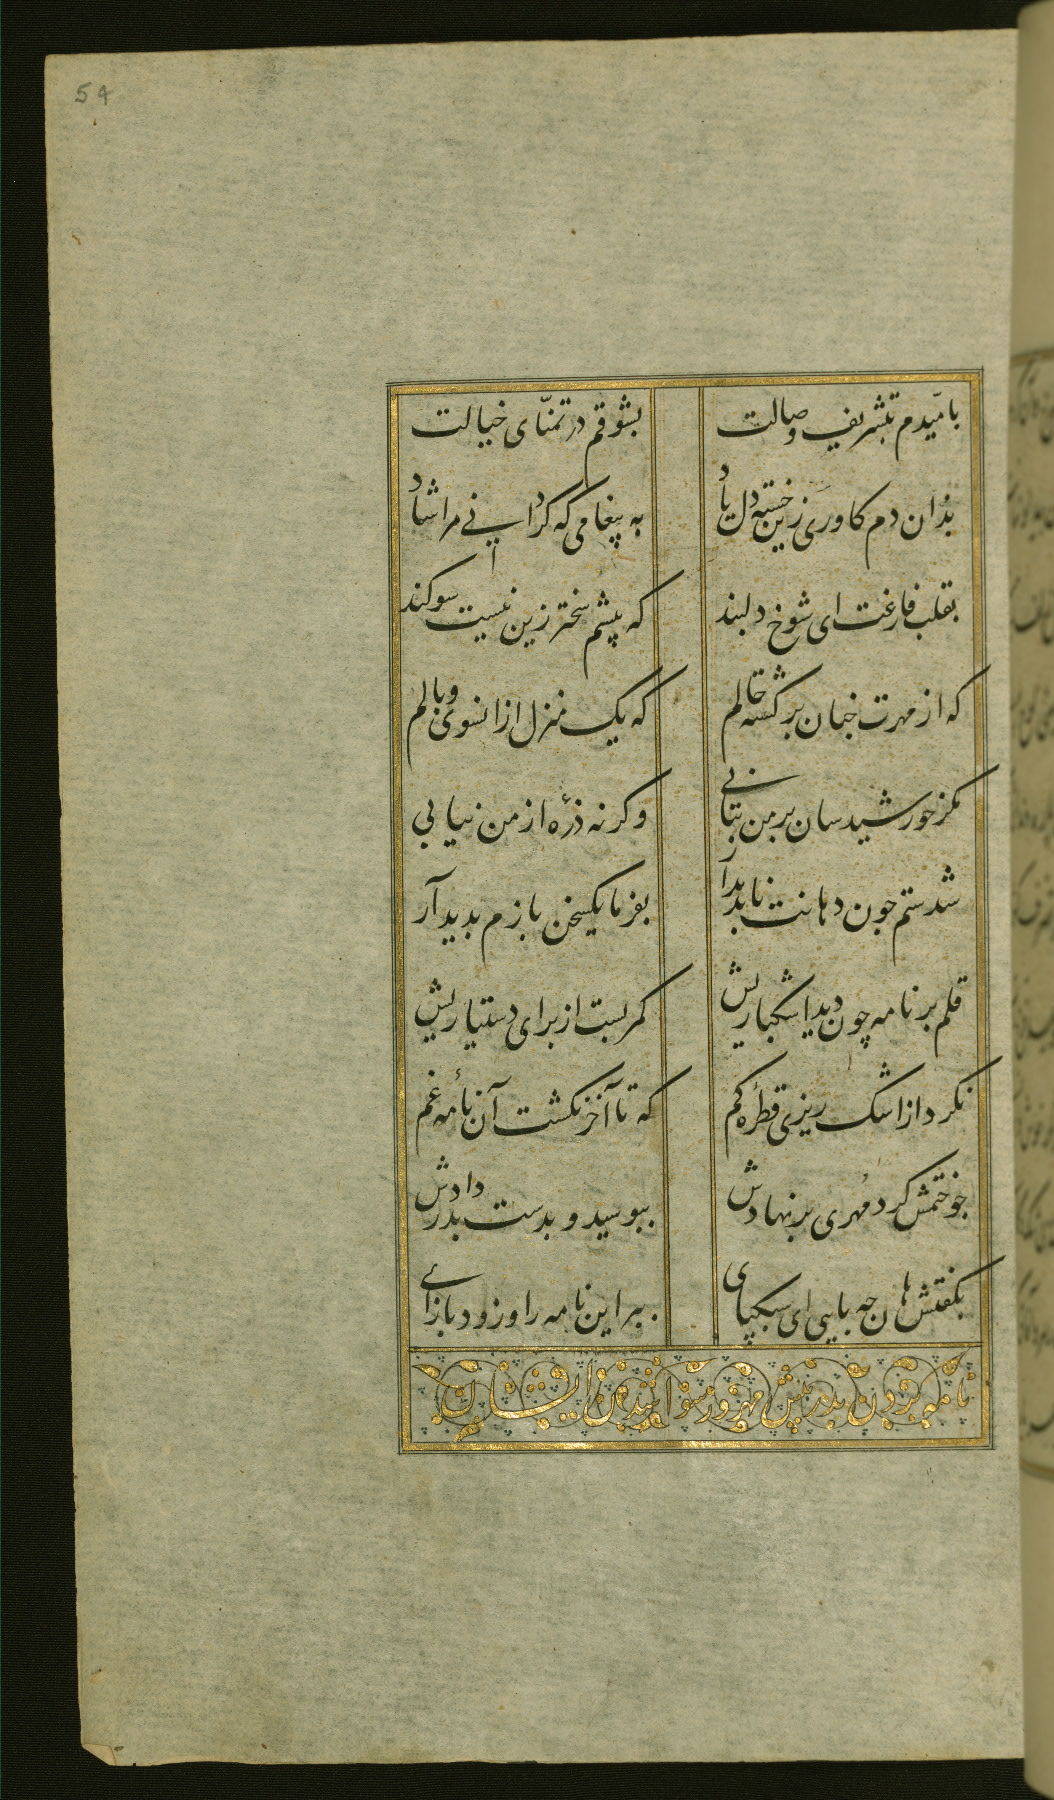 54
بامیدم تبشریف وصالت بشوقم در تمنّای خیالت
بدان دم کاوری زین خسته دل یاد به پیغامی که گردانی مرا شاد
بقلب فارغت ای شوخ دلبند که پیشم سختر زین نیست سوکند
که از مهرت جنان برکشته حالم که یک منزل ازانسوی وبالم
مکر خورشیدسان بر من بتابی وکرنه ذرهٔ از من نیابی
شدستم جون دهانت نابدیدار بفرما یکسخن بازم بدید آر
قلم بر نامه چون دید اشکباریش کمر بست از برای دستیاریش
نکرد از اشک ریزی قطرهٔ کم که تا آخر نکشت آن نامهٔ غم
جو ختمش کرد مهری بر نهادش ببوسید و بدست بدر دادش
بکفتش هان جه بایی ای سبکپای ببر این نامه را و زود بازآی
نامه بردن بدر پیش مهر و